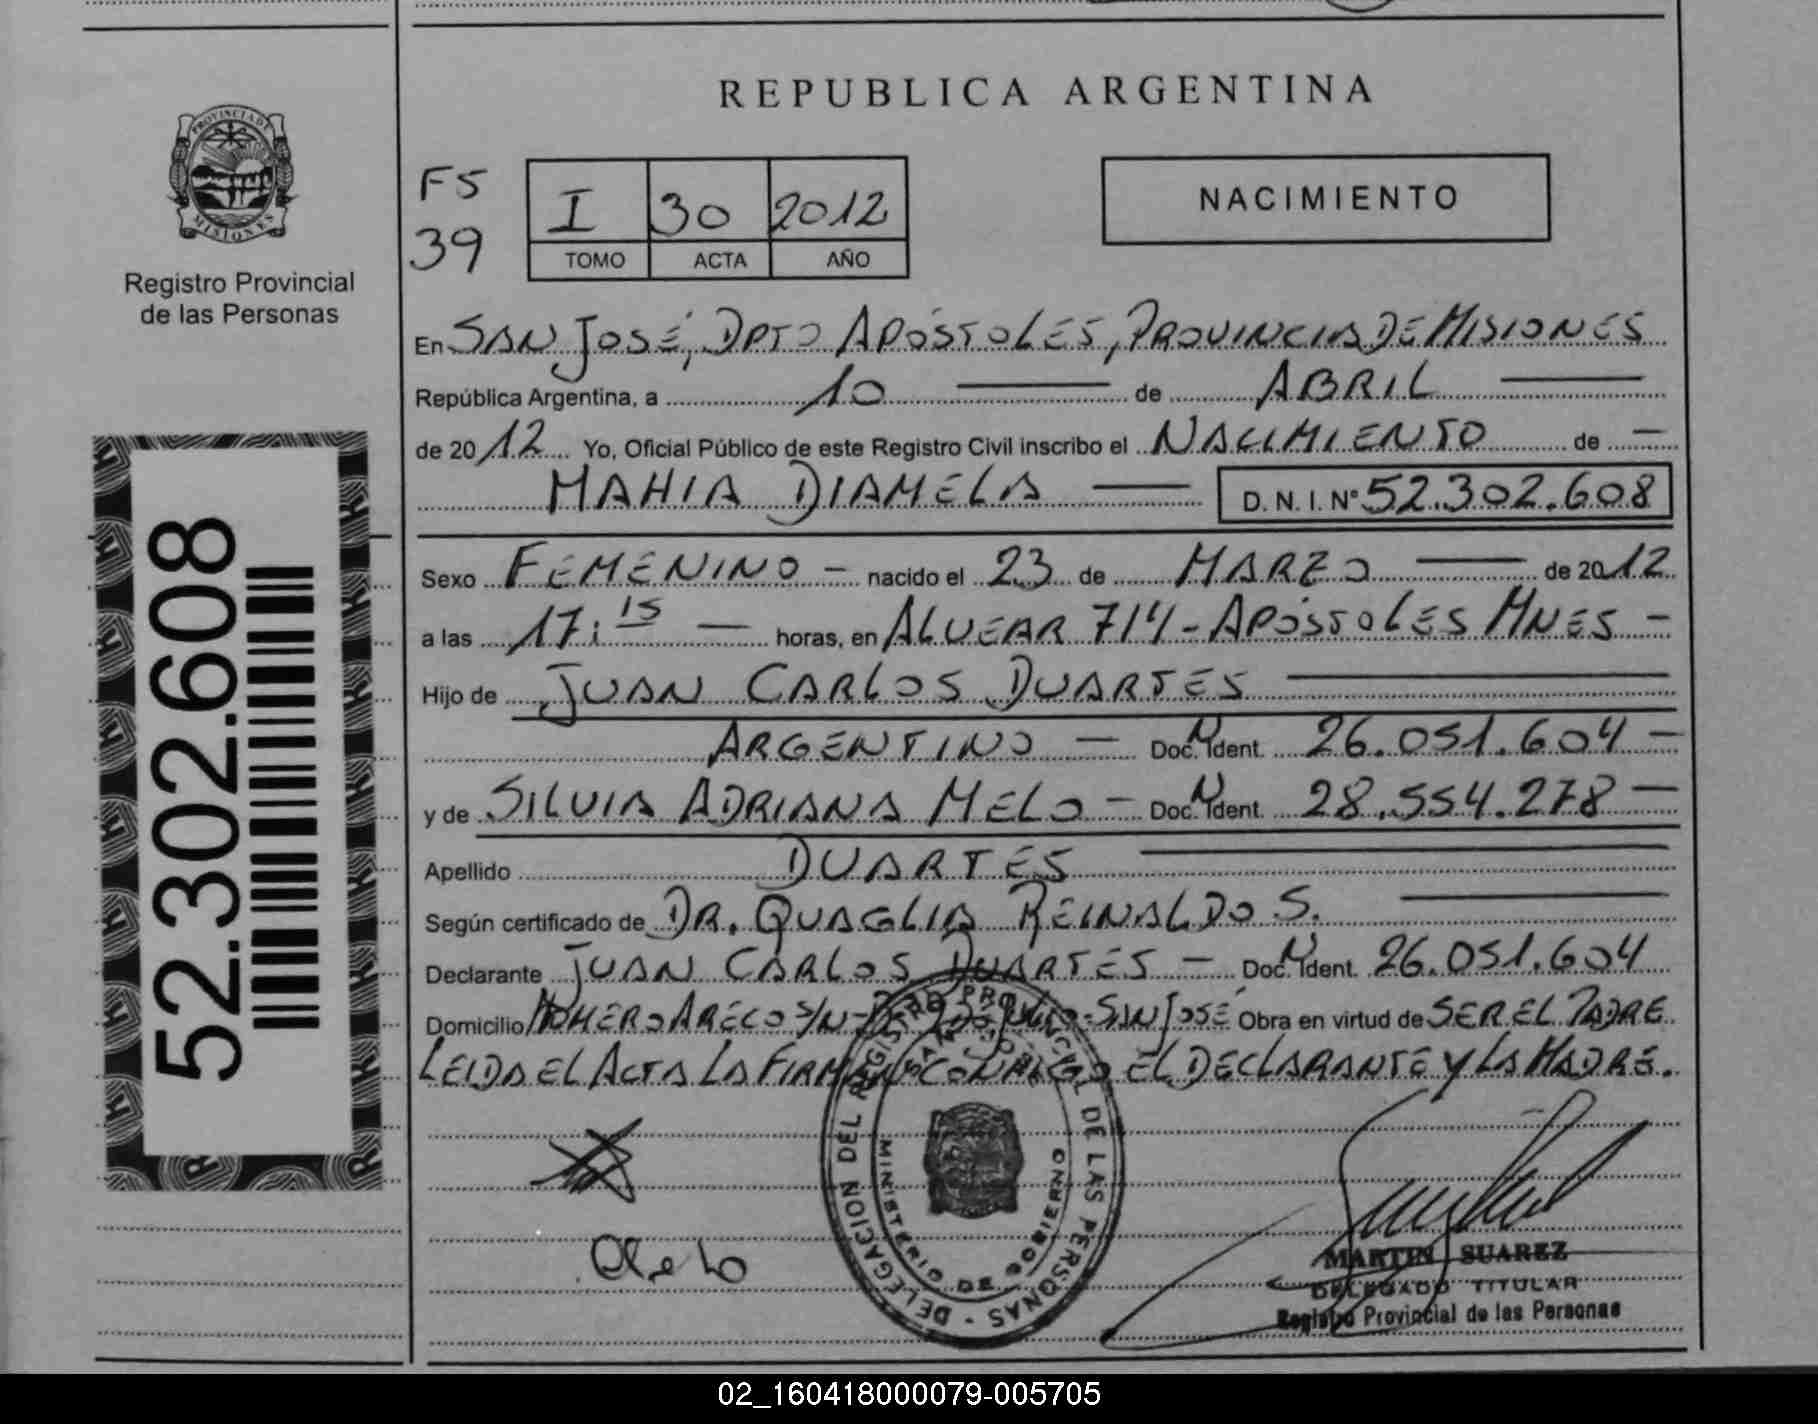 REPUBLICA ARGENTINA
PROVINCIA DE MISIONES
Registro Provincial
de las Personas
F5
39
I 30 2012
TOMO ACTA AÑO
NACIMIENTO
En SAN JOSÉ, DPTO APÓSTOLES, PROVINCIA DE MISIONES
República Argentina, a 10 de ABRIL
de 2012 Yo, Oficial Público de este Registro Civil inscribo el NACIMIENTO de
MAHIA DIAMELA D. N. I. Nº 52.302.608
Sexo FEMENINO - nacido el 23 de MARZO de 2012
a las 17:15 horas, en ALVEAR 714 - APÓSTOLES MNES -
Hijo de JUAN CARLOS DUARTES
ARGENTINO - Doc. Ident. 26.051.604 -
y de SILVIA ADRIANA MELO - Doc. Ident. 28.554.278 -
Apellido DUARTES
Según certificado de DR. QUAGLIA REINALDO S.
Declarante JUAN CARLOS DUARTES - Doc. Ident. 26.051.604
Domicilio HOMERO ARECO S/N - SAN JOSÉ Obra en virtud de SER EL PADRE
LEIDA EL ACTA LA FIRMAN CONMIGO EL DECLARANTE Y LA MADRE.
52.302.608
DELEGACION DEL REGISTRO PROVINCIAL DE LAS PERSONAS -
SAN JOSE
MINISTERIO DE GOBIERNO
MARTIN SUAREZ
DELEGADO TITULAR
Registro Provincial de las Personas
02_160418000079-005705